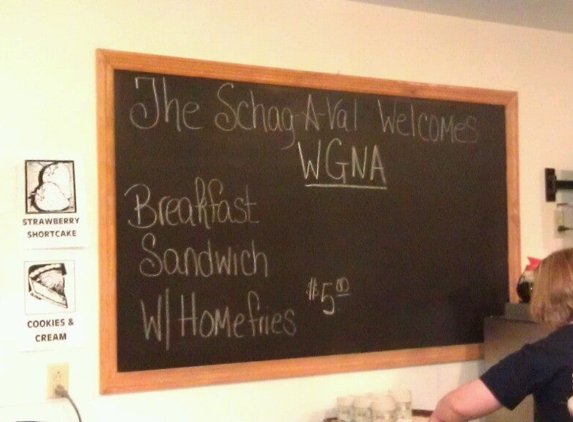 The Schag-A-Val Welcomes
WGNA
Breakfast
Sandwich
W/ Homefries $5.00
STRAWBERRY
SHORTCAKE
COOKIES &
CREAM